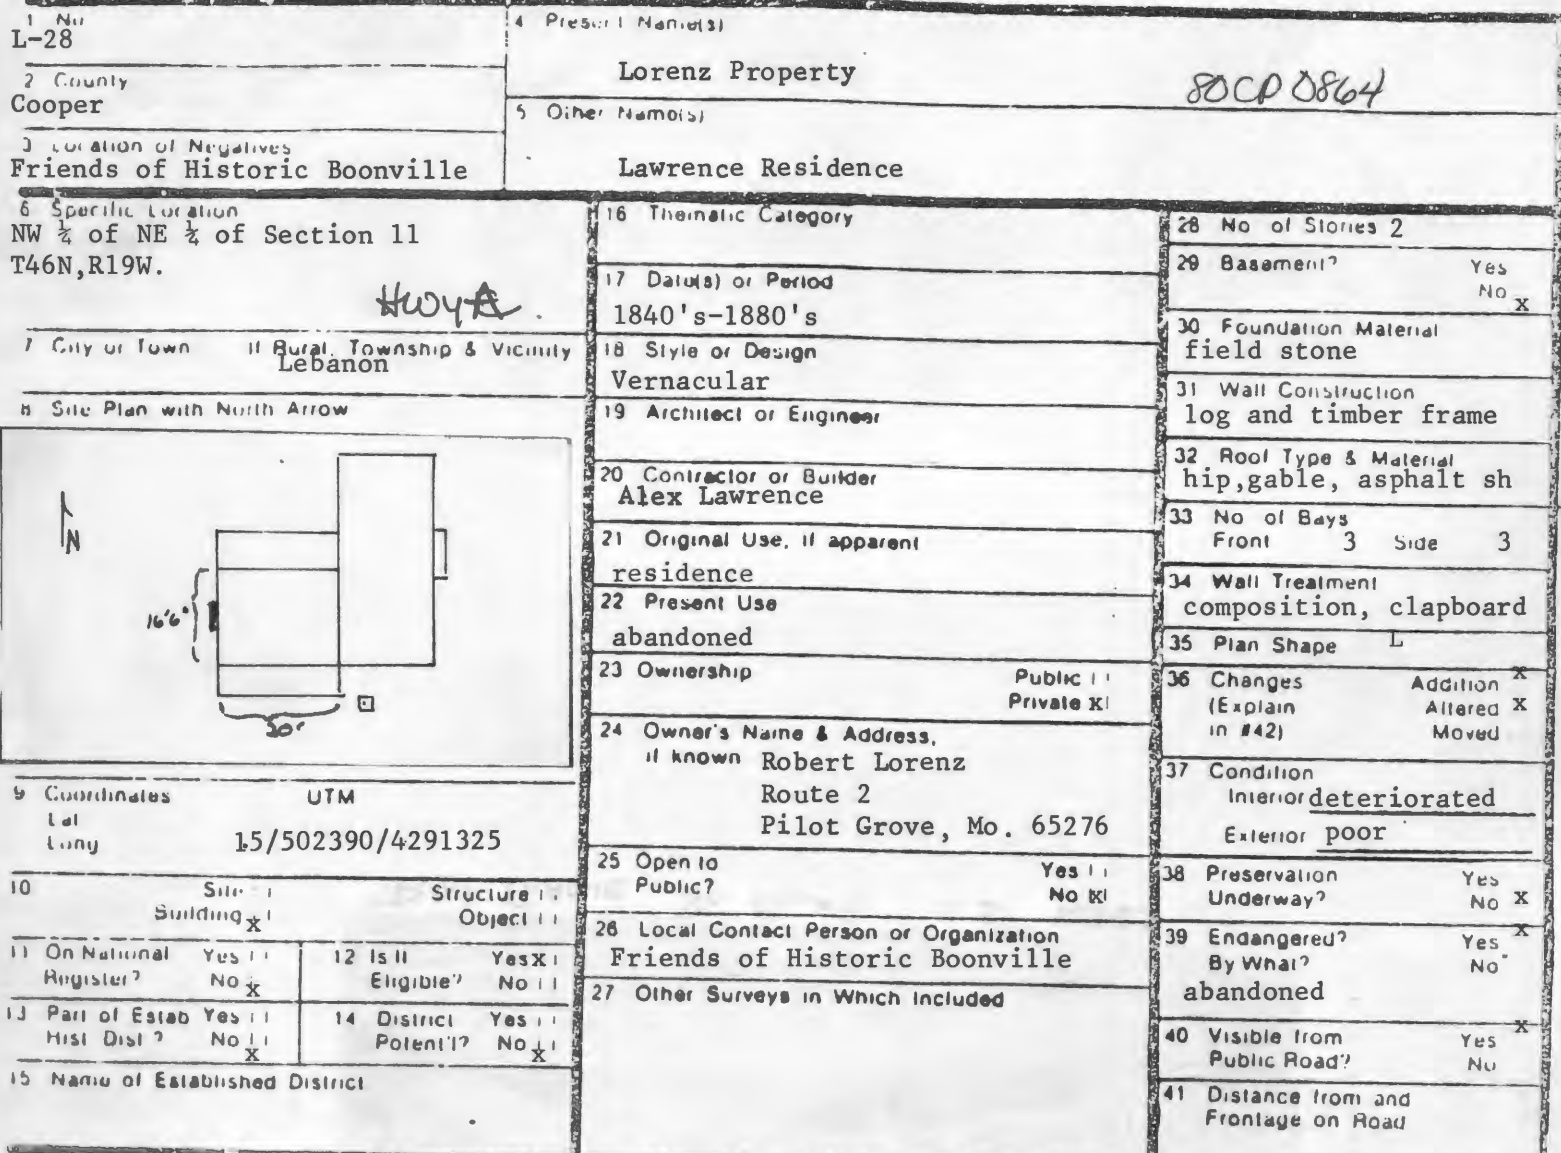 1 No
L-28
2 County
Cooper
3 Location of Negatives
Friends of Historic Boonville
4 Present Name(s)
Lorenz Property
80CP0864
5 Other Name(s)
Lawrence Residence
6 Specific Location
NW ¼ of NE ¼ of Section 11
T46N,R19W.
HWY A.
7 City or Town If Rural, Township & Vicinity
Lebanon
8 Site Plan with North Arrow
N
16'6"
20'
9 Coordinates UTM
Lat
Long
15/502390/4291325
10 Site Structure
Building x Object
11 On National Yes
Register? No x
12 Is It Yes x
Eligible? No
13 Part of Estab Yes
Hist Dist? No x
14 District Yes
Potent'l? No x
15 Name of Established District
16 Thematic Category
17 Date(s) or Period
1840's-1880's
18 Style or Design
Vernacular
19 Architect or Engineer
20 Contractor or Builder
Alex Lawrence
21 Original Use, if apparent
residence
22 Present Use
abandoned
23 Ownership Public
Private x
24 Owner's Name & Address,
if known Robert Lorenz
Route 2
Pilot Grove, Mo. 65276
25 Open to Yes
Public? No x
26 Local Contact Person or Organization
Friends of Historic Boonville
27 Other Surveys in Which Included
28 No of Stories 2
29 Basement? Yes
No x
30 Foundation Material
field stone
31 Wall Construction
log and timber frame
32 Roof Type & Material
hip,gable, asphalt sh
33 No of Bays
Front 3 Side 3
34 Wall Treatment
composition, clapboard
35 Plan Shape L
36 Changes Addition x
(Explain Altered x
in #42) Moved
37 Condition
Interior deteriorated
Exterior poor
38 Preservation Yes
Underway? No x
39 Endangered? Yes x
By What? No
abandoned
40 Visible from Yes x
Public Road? No
41 Distance from and
Frontage on Road